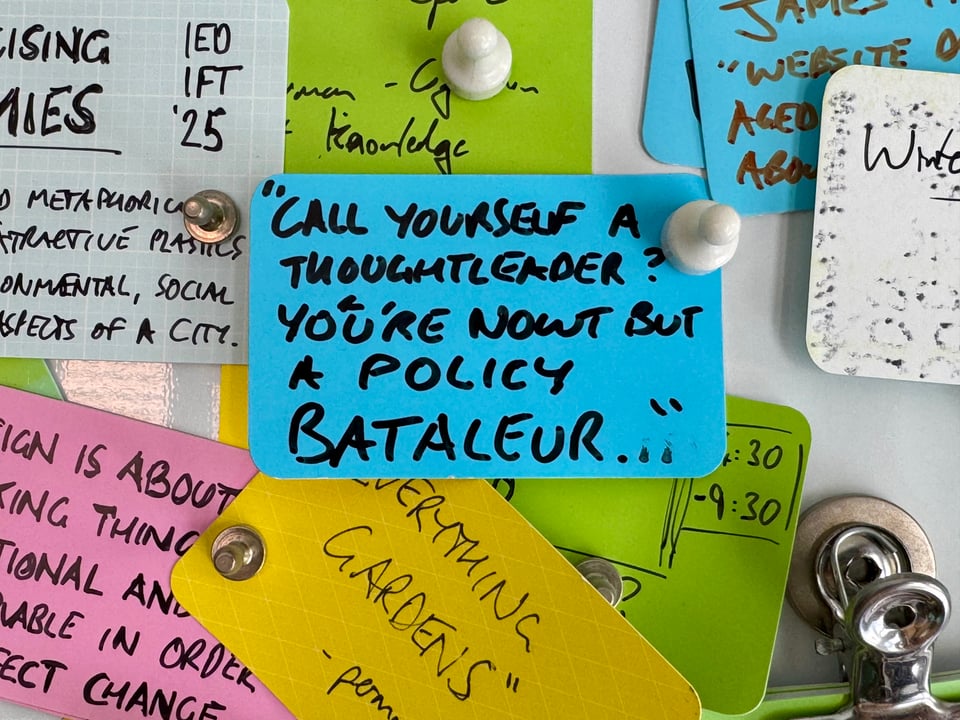 ISING
IED
IFT
'25
MIES
METAPHORIC
ATTRACTIVE PLASTICS
ONMENTAL, SOCIAL
ASPECTS OF A CITY.
Knowledge
JAMES
"WEBSITE
AGED
ABOU
"CALL YOURSELF A
THOUGHTLEADER?
YOU'RE NOWT BUT
A POLICY
BATALEUR..."
4:30
-9:30
IGN IS ABOUT
KING THING
TIONAL AND
ABLE IN ORDER
FECT CHANGE
EVERYTHING
GARDENS"